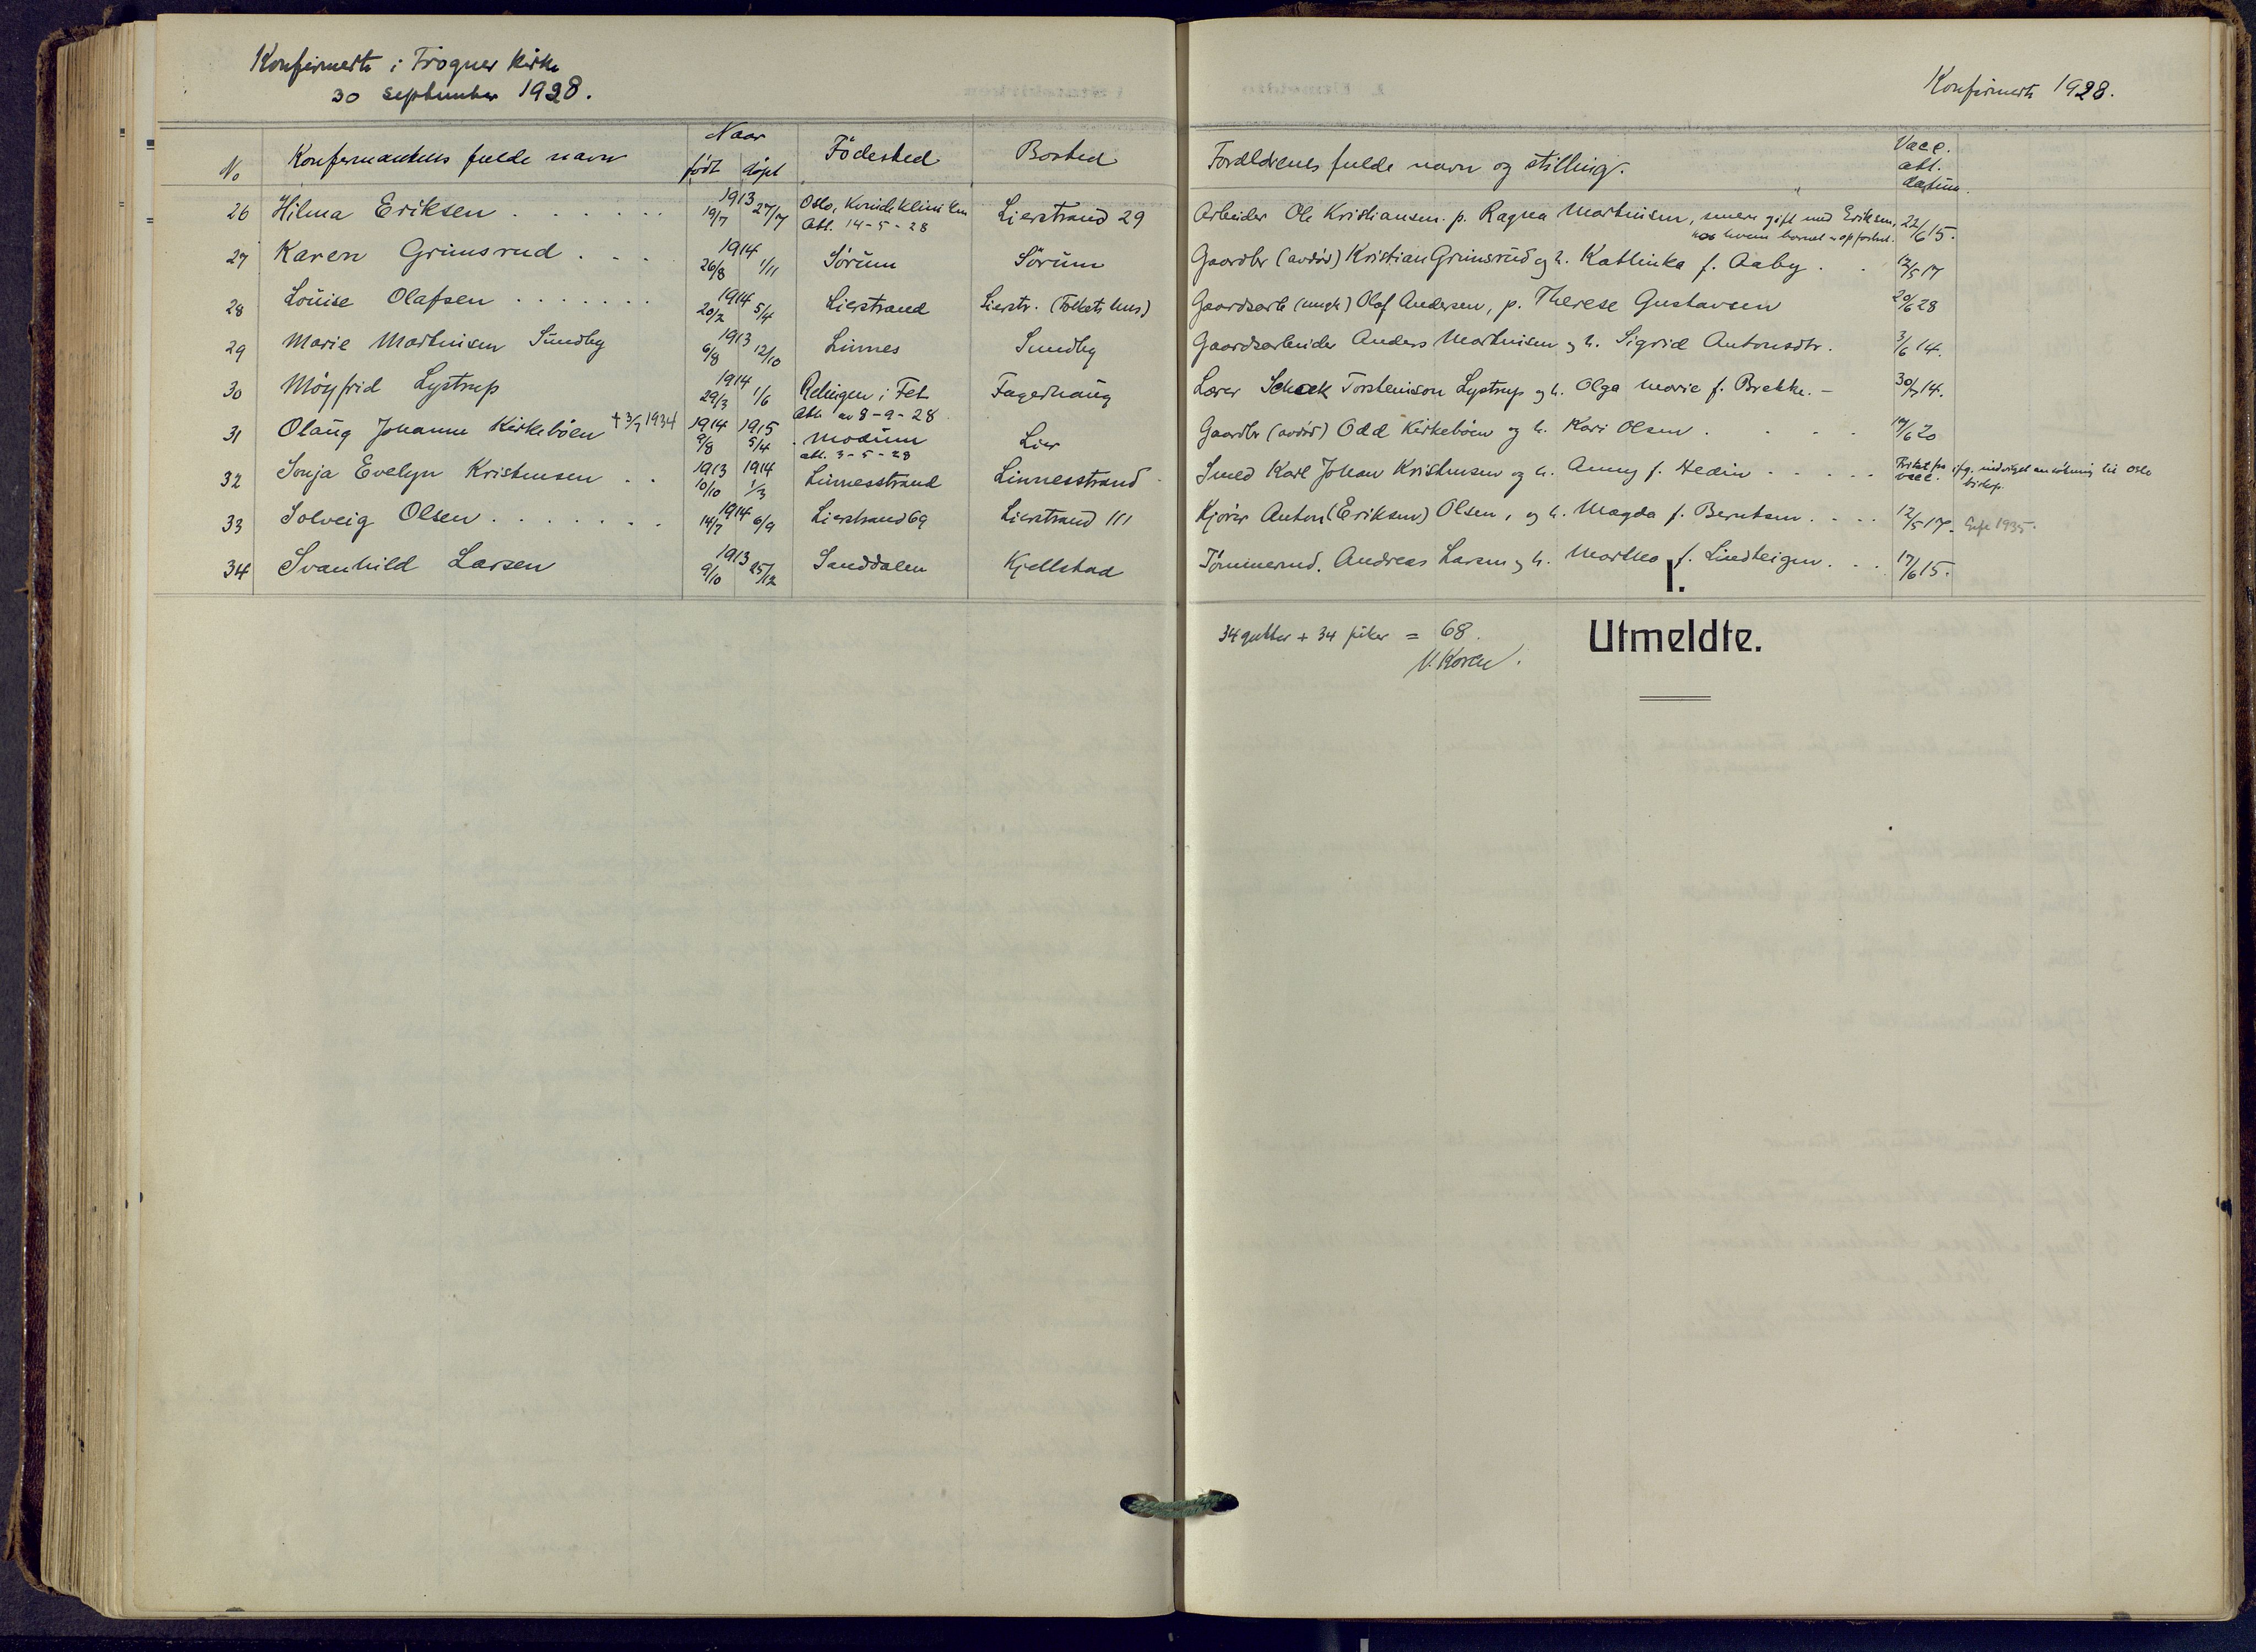 Konfirmerte i Frogner kirke
30 september 1928.
Konfirmerte 1928.
No Konfirmantens fulde navn Naar født døpt Födested Bosted Forældrenes fulde navn og stilling. Vacc. att. datum.
26 Hilma Eriksen 1913 19/7 27/7 Oslo, Kvindeklinikken Att. 14-5-28 Lierstrand 29 Arbeider Ole Kristiansen p. Ragna Martinsen, senere gift med Eriksen, hos hvem barnet er opfostret. 22/6 15.
27 Karen Grimsrud 1914 26/8 1/11 Sörum Sörum Gaardbr (avdöd) Kristian Grimsrud og h. Kathinka f. Aaby 12/5 17
28 Louise Olafsen 1914 20/2 5/4 Lierstrand Lierstr. (Folkets hus) Gaardsarb (ungk) Olaf Andersen, p. Therese Gustavsen 20/6 28
29 Marie Martinsen Sundby 1913 6/8 12/10 Linnes Sundby Gaardsarbeider Anders Martinsen og h. Sigrid Antonsdtr. 3/6 14.
30 Möyfrid Lystrup 1914 29/3 1/6 Relingen i Fet Att. av 8-9-28 Fagerhaug Lærer Schack Torstenson Lystrup og h. Olga Marie f. Brekke. - 30/7 14.
31 Olaug Johanne Kirkeböen + 3/7 1934 1914 9/8 1915 5/4 Modum att. 3-5-28 Lier Gaardbr (avdöd) Odd Kirkeböen og h. Kari Olsen 17/6 20
32 Sonja Evelyn Kristensen 1913 10/10 1914 1/3 Linnesstrand Linnesstrand Smed Karl Johan Kristensen og h. Anny f. Hedin Fritat fra vacc. ifg. indvilget ansökning til Oslo biskop.
33 Solveig Olsen 1914 14/7 6/9 Lierstrand 69 Lierstrand 111 Kjörer Anton (Eriksen) Olsen, og h. Magda f. Berntsen 12/5 17. Gift 1935.
34 Svanhild Larsen 1913 9/10 25/12 Sanddalen Kjellstad Tömmermd. Andreas Larsen og h. Martha f. Lindheigen 17/6 15.
I.
Utmeldte.
34 gutter + 34 piker = 68.
V. Koren.